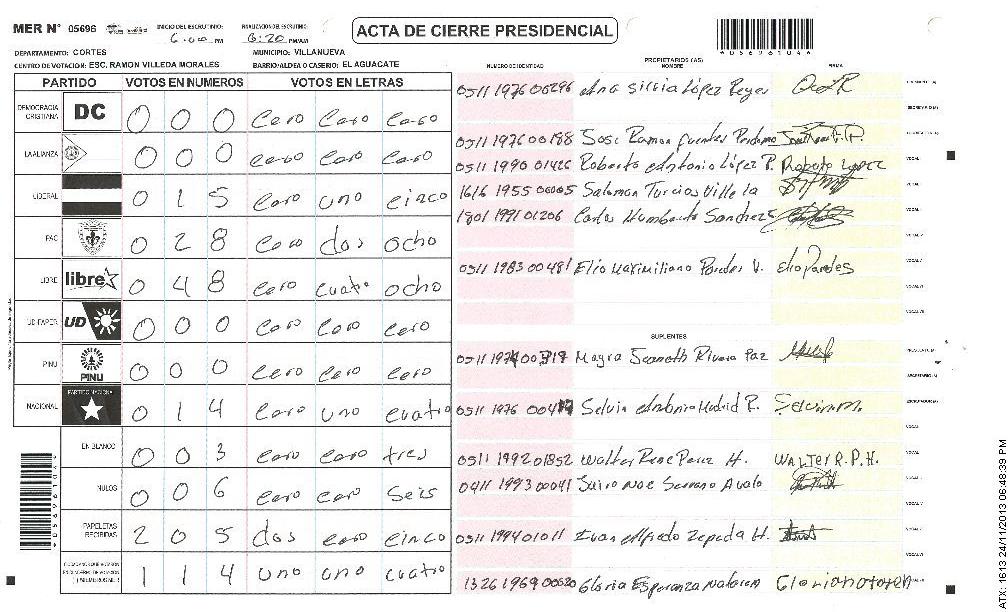 MER N° 05696 INICIO DEL ESCRUTINIO: 6:00 PM FINALIZACION DEL ESCRUTINIO: 6:20 PM/AM ACTA DE CIERRE PRESIDENCIAL
*056961046*
DEPARTAMENTO: CORTES MUNICIPIO: VILLANUEVA
CENTRO DE VOTACION: ESC. RAMON VILLEDA MORALES BARRIO/ALDEA O CASERIO: EL AGUACATE
PARTIDO VOTOS EN NUMEROS VOTOS EN LETRAS
DEMOCRACIA CRISTIANA DC 0 0 0 Cero Cero Cero
LA ALIANZA 0 0 0 Cero Cero Cero
LIBERAL 0 1 5 Cero uno cinco
PAC 0 2 8 Cero dos ocho
LIBRE libre 0 4 8 Cero cuatro ocho
UD-FAPER UD 0 0 0 Cero Cero Cero
PINU PINU 0 0 0 Cero Cero Cero
NACIONAL PARTIDO NACIONAL 0 1 4 Cero uno cuatro
EN BLANCO 0 0 3 Cero Cero tres
NULOS 0 0 6 Cero Cero Seis
PAPELETAS RECIBIDAS 2 0 5 dos Cero cinco
1 1 4 uno uno cuatro
NUMERO DE IDENTIDAD PROPIETARIOS (AS) NOMBRE FIRMA
0511 1976 00296 Ana Silvia López Reyes
0511 1976 00188 Jose Ramon Fuentes Perdomo
0511 1990 01426 Roberto Antonio López P. Roberto Lopez
1616 1955 00005 Salomon Turcios Villela
1801 1991 01206 Carlos Humberto Sanchez
0511 1983 00481 Elio Maximiliano Paredes V. elio Paredes
SUPLENTES
Mayra Rivera Paz
0511 1976 Selvin Antonio Madrid R. Selvin m.
0511 1992 01852 Walter Rene Perez H. WALTER R.P.H.
0411 1993 00041 Jairo Noe Serrano Avalo
0511 1994 01011 Evan Alfredo Zepeda H.
1326 1969 00520 Gloria Esperanza Nataren Glorianataren
*056961046*
ATX: 1613 24/11/2013 06:48:39 PM